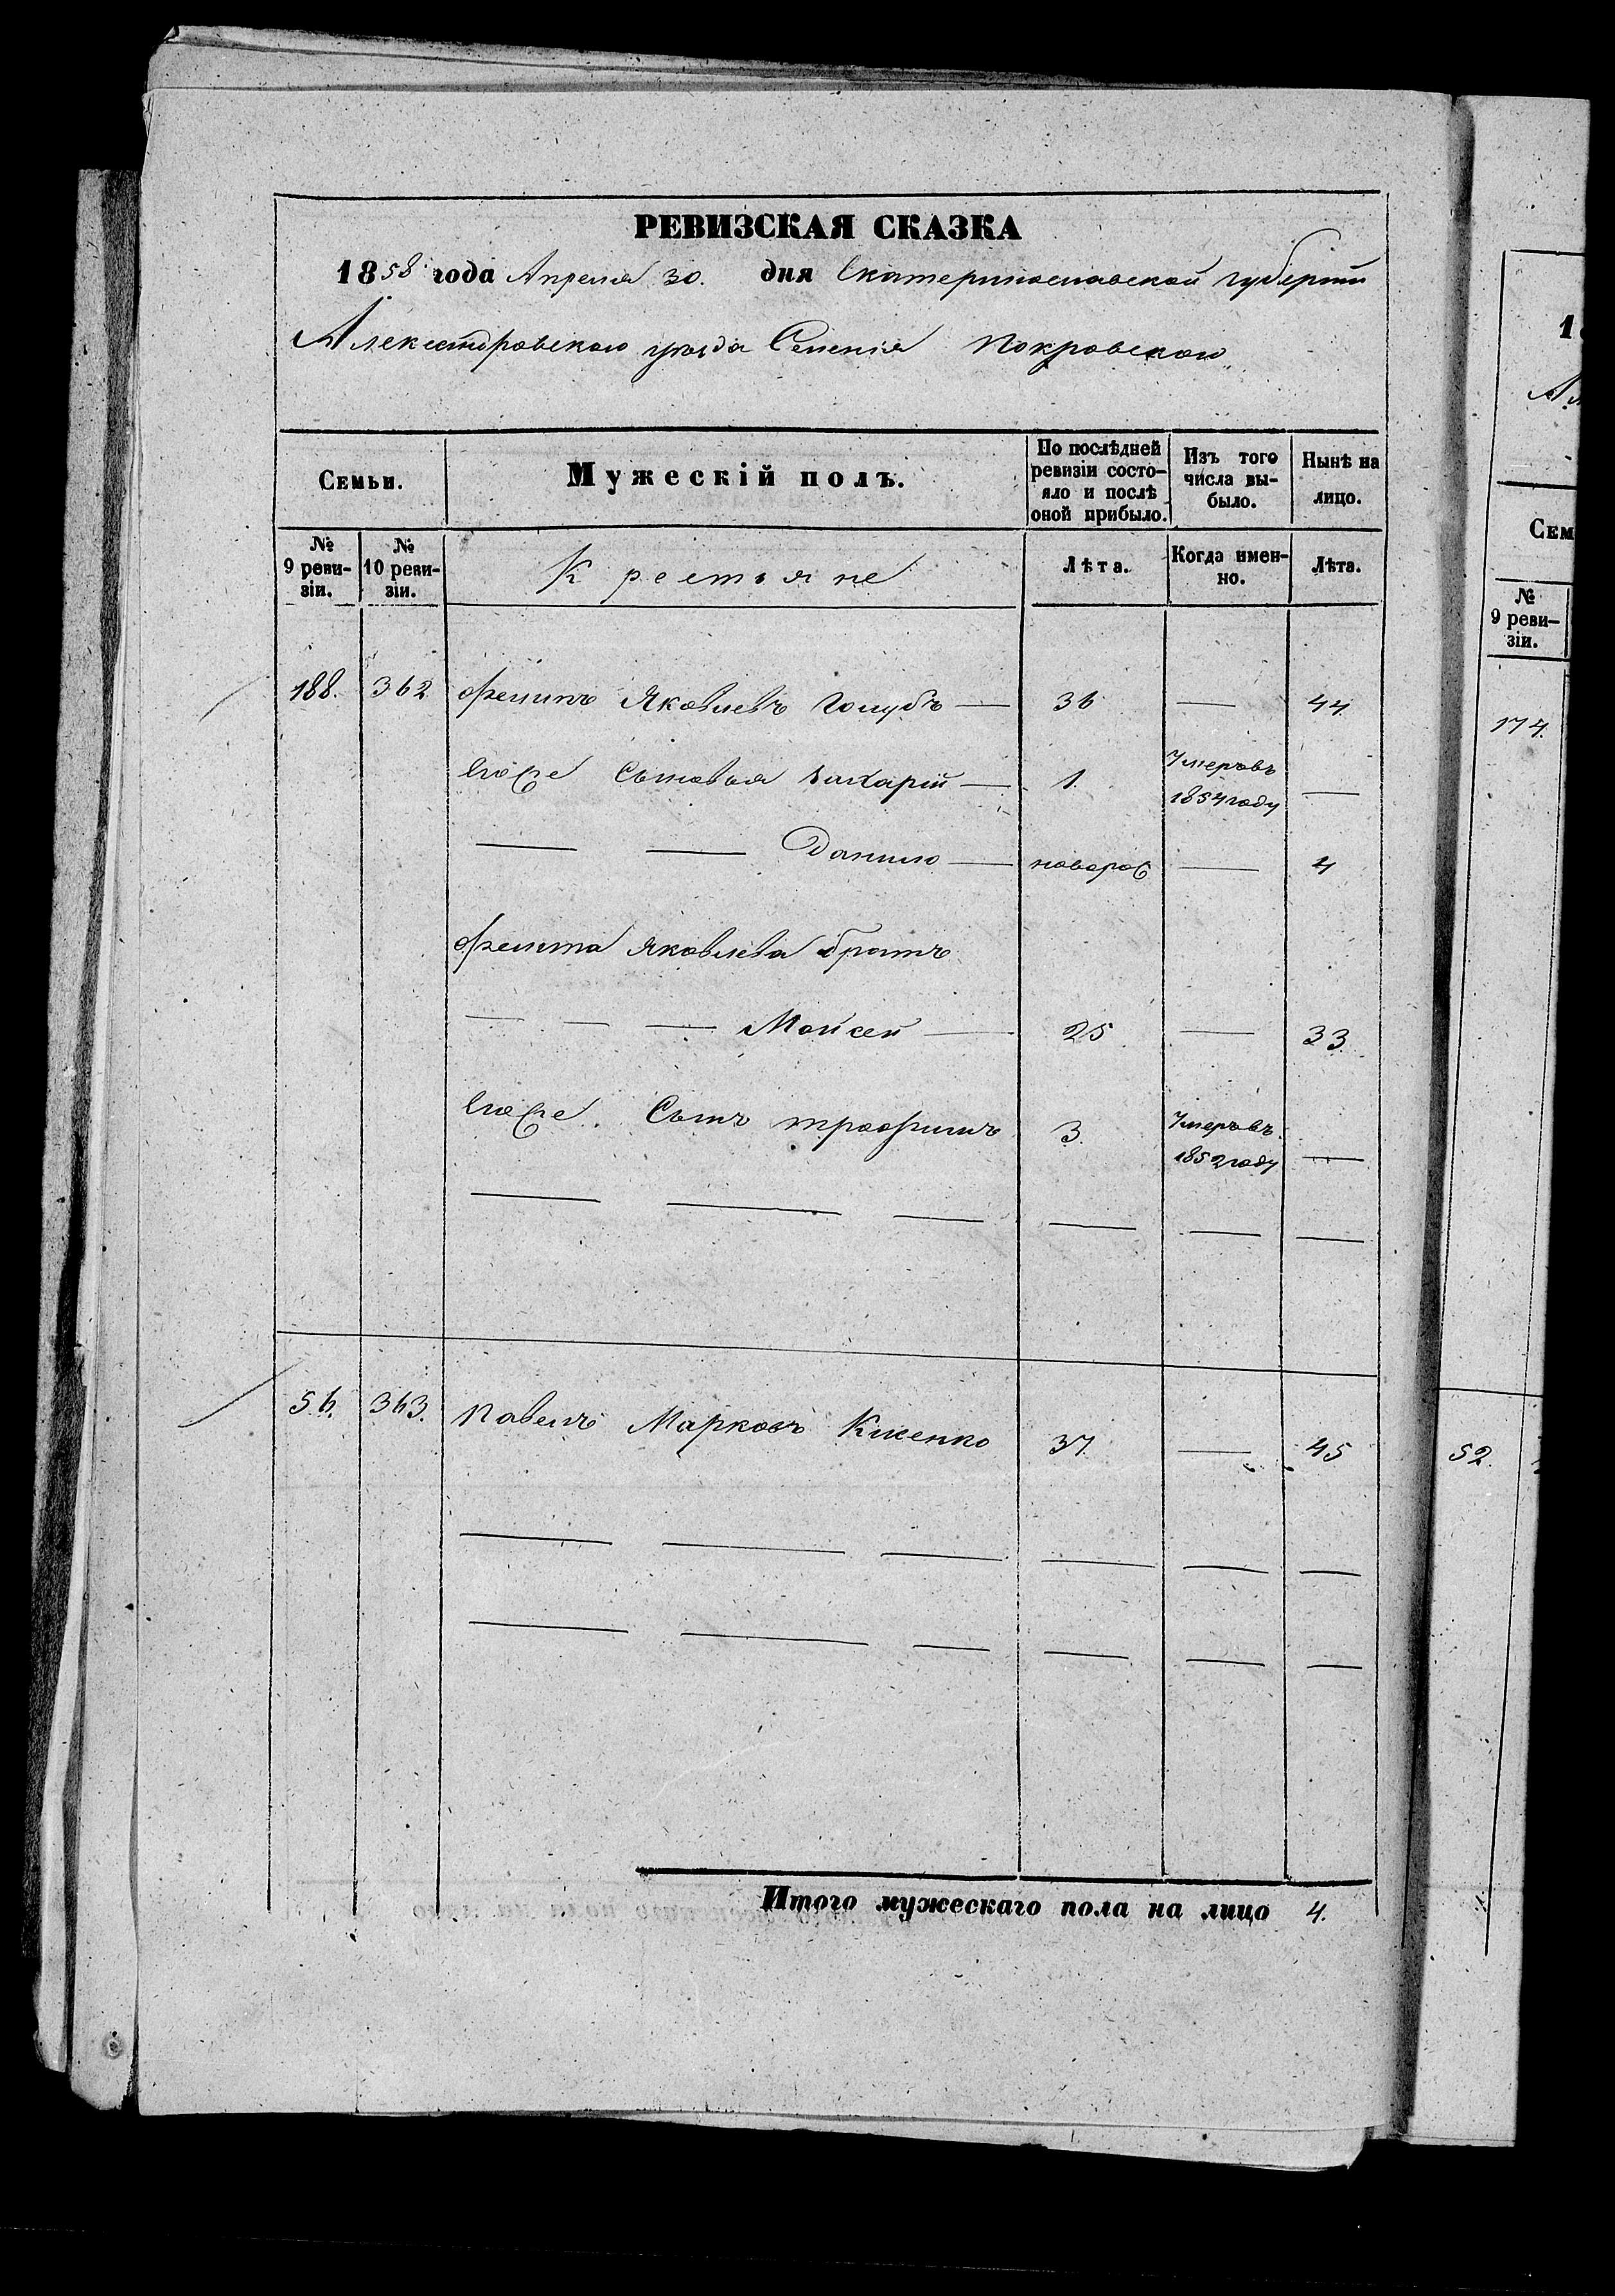 РЕВИЗСКАЯ СКАЗКА
1858 года Апреля 30. дня Екатеринославской губерніи
Александровскаго уѣзда Селенія Покровскаго
Семьи.
Мужескій полъ.
По послѣдней ревизіи состо-
яло и послѣ оной прибыло.
Изъ того числа вы-
было.
Нынѣ на лицо.
№ 9 реви-
зіи.
№ 10 реви-
зіи.
Крестьяне
Лѣта.
Когда имен-
но.
Лѣта.
188. 362 Филипъ Яковлевъ Голубъ — 36 — 44.
Его же Сыновья Захарій — 1. Умеръ въ
1854 году —
— — Данило — новорож — 4
Филипа Яковлева братъ
— — — Мойсей — 25 — 33.
Его же Сынъ Трофимъ 3. Умеръ въ
1852 году —
56. 363. Павелъ Марковъ 37 — 45
Итого мужескаго пола на лицо 4.
1
Сем
№
9 реви-
зіи.
174.
52.